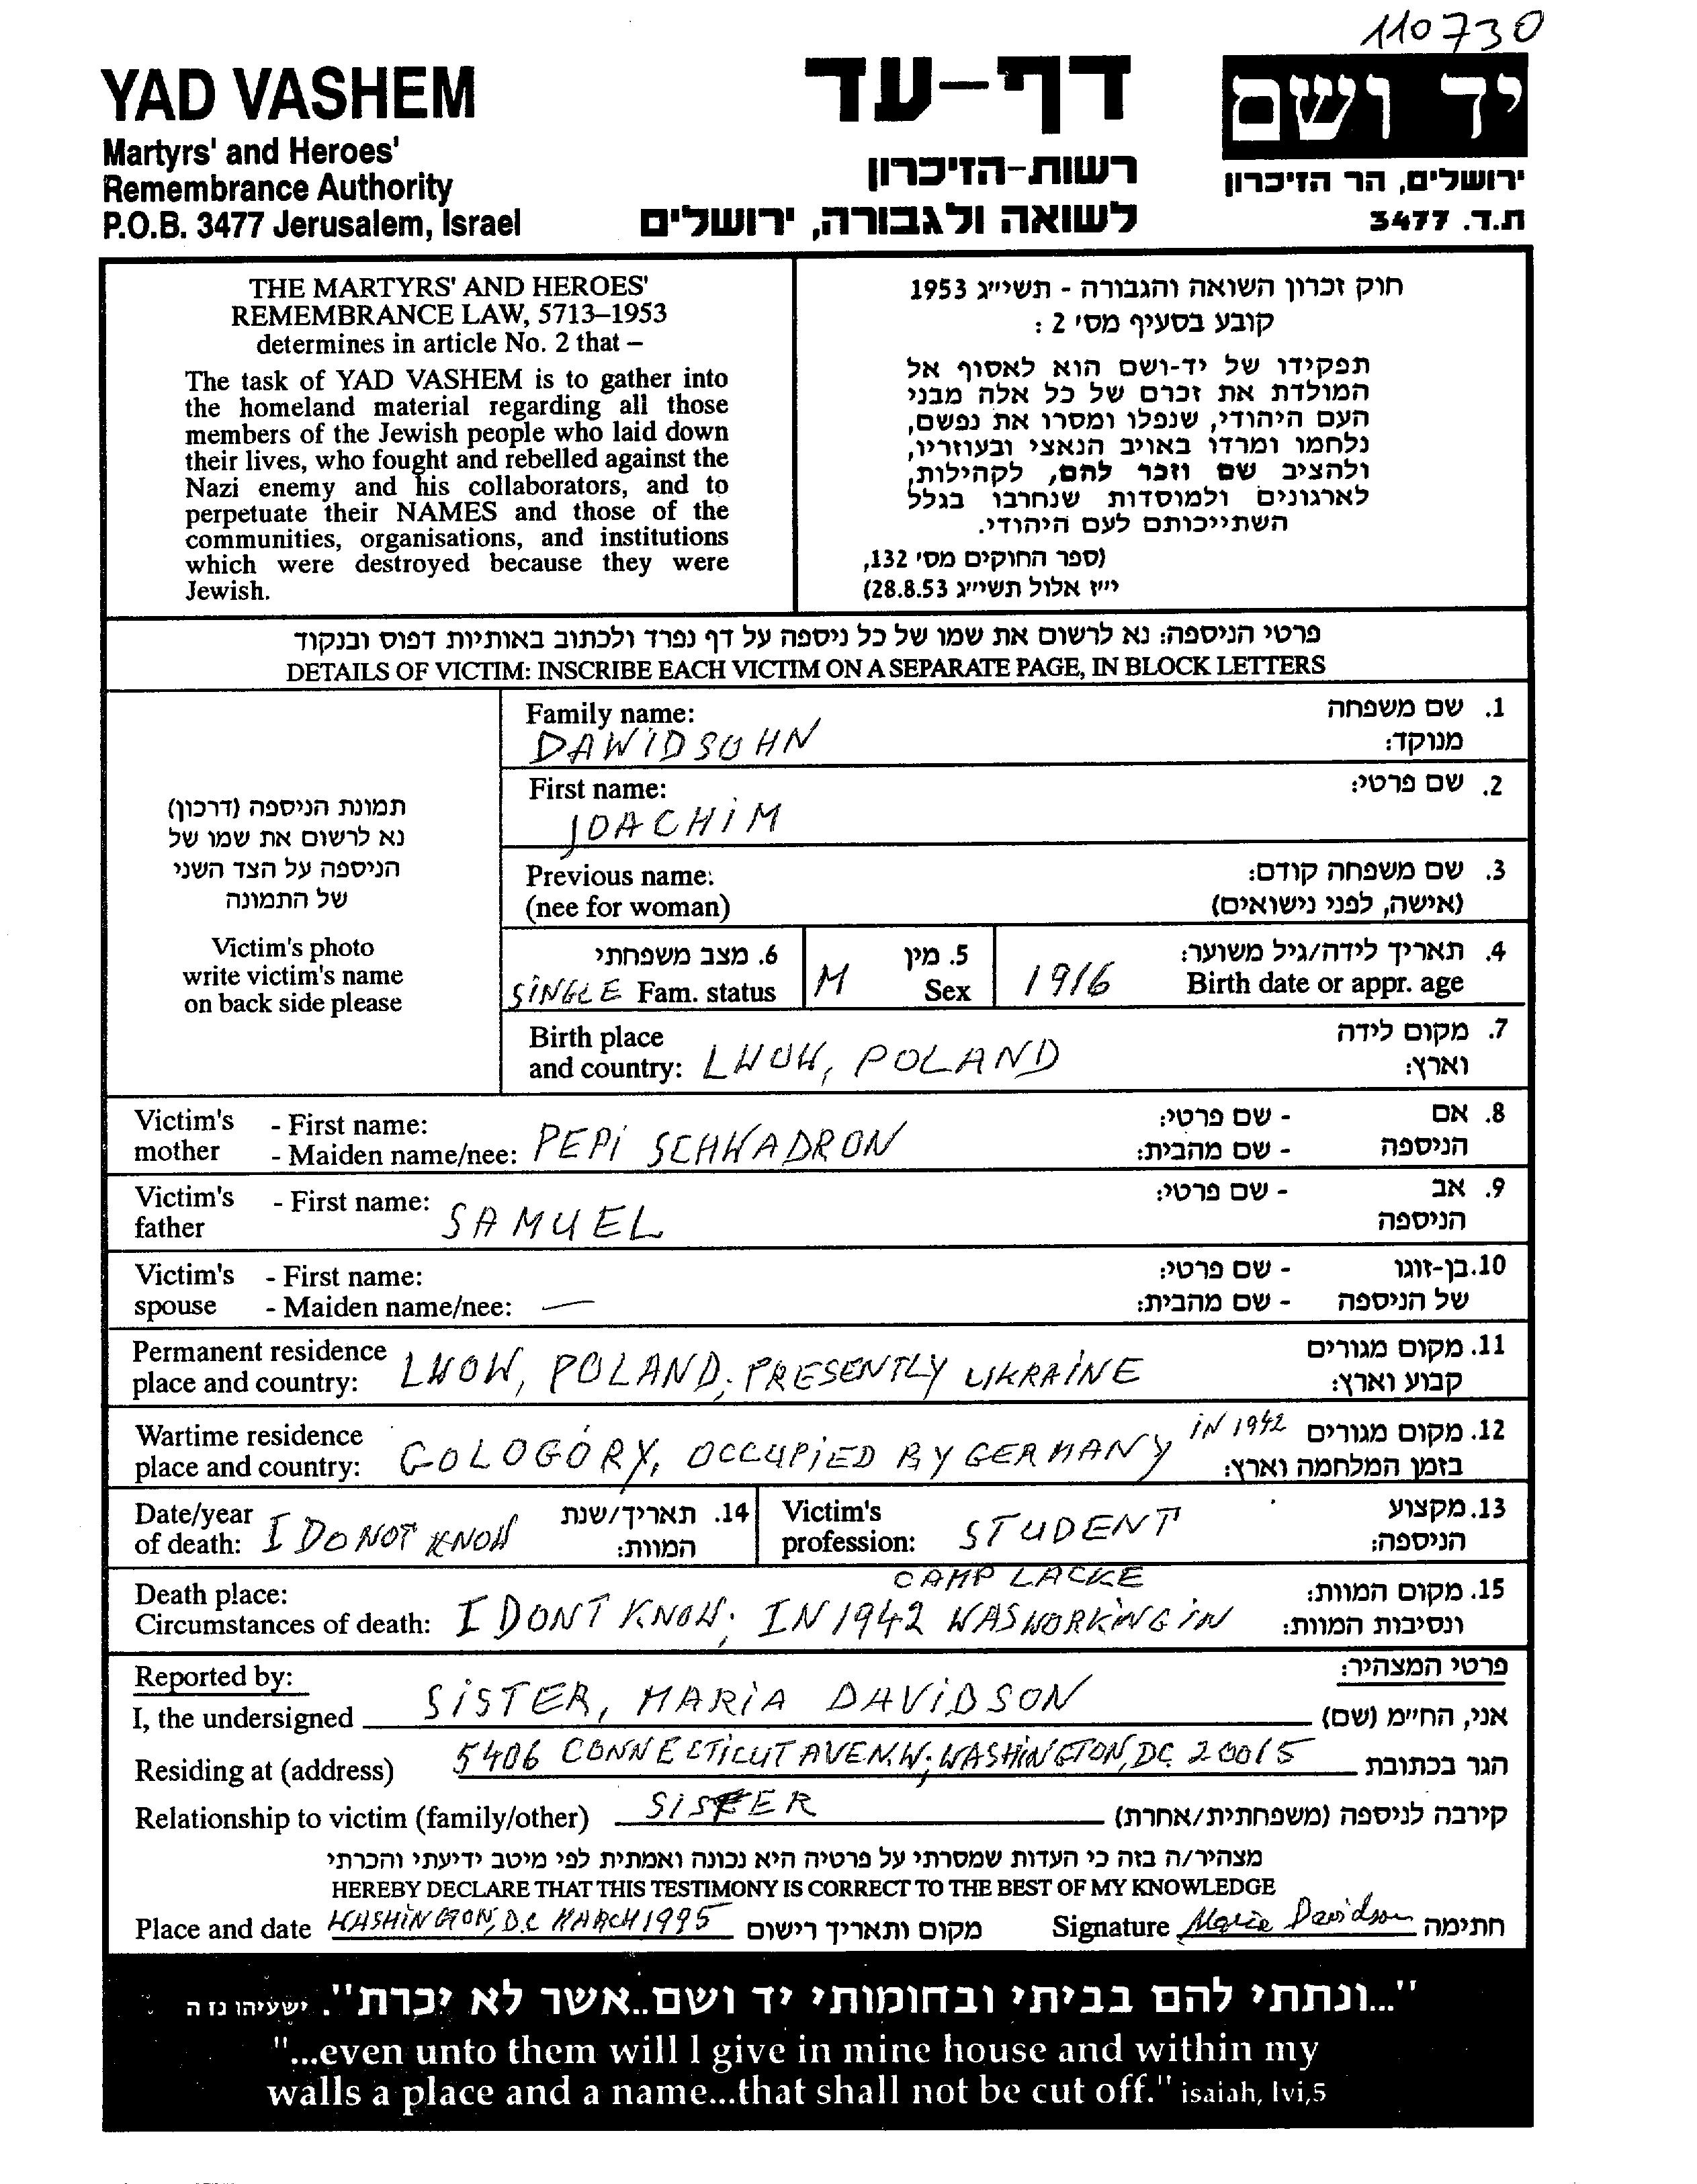 110730
YAD VASHEM
Martyrs' and Heroes'
Remembrance Authority
P.O.B. 3477 Jerusalem, Israel
דף-עד
רשות-הזיכרון
לשואה ולגבורה, ירושלים
יד ושם
ירושלים, הר הזיכרון
ת.ד. 3477
THE MARTYRS' AND HEROES'
REMEMBRANCE LAW, 5713–1953
determines in article No. 2 that –
The task of YAD VASHEM is to gather into
the homeland material regarding all those
members of the Jewish people who laid down
their lives, who fought and rebelled against the
Nazi enemy and his collaborators, and to
perpetuate their NAMES and those of the
communities, organisations, and institutions
which were destroyed because they were
Jewish.
חוק זכרון השואה והגבורה - תשי״ג 1953
קובע בסעיף מס׳ 2 :
תפקידו של יד-ושם הוא לאסוף אל
המולדת את זכרם של כל אלה מבני
העם היהודי, שנפלו ומסרו את נפשם,
נלחמו ומרדו באויב הנאצי ובעוזריו,
ולהציב שם וזכר להם, לקהילות,
לארגונים ולמוסדות שנחרבו בגלל
השתייכותם לעם היהודי.
(ספר החוקים מס׳ 132,
י״ז אלול תשי״ג 28.8.53)
פרטי הניספה: נא לרשום את שמו של כל ניספה על דף נפרד ולכתוב באותיות דפוס ובנקוד
DETAILS OF VICTIM: INSCRIBE EACH VICTIM ON A SEPARATE PAGE, IN BLOCK LETTERS
תמונת הניספה (דרכון)
נא לרשום את שמו של
הניספה על הצד השני
של התמונה
Victim's photo
write victim's name
on back side please
Family name: 1. שם משפחה
DAWIDSOHN מנוקד:
First name: 2. שם פרטי:
JOACHIM
Previous name: 3. שם משפחה קודם:
(nee for woman) (אישה, לפני נישואים)
6. מצב משפחתי 5. מין 4. תאריך לידה/גיל משוער:
SINGLE Fam. status M Sex 1916 Birth date or appr. age
Birth place 7. מקום לידה
and country: LWOW, POLAND וארץ:
Victim's - First name: - שם פרטי: 8. אם
mother - Maiden name/nee: PEPI SCHWADRON - שם מהבית: הניספה
Victim's - First name: - שם פרטי: 9. אב
father SAMUEL הניספה
Victim's - First name: - שם פרטי: 10. בן-זוגו
spouse - Maiden name/nee: — - שם מהבית: של הניספה
Permanent residence 11. מקום מגורים
place and country: LWOW, POLAND, PRESENTLY UKRAINE קבוע וארץ:
Wartime residence IN 1942 12. מקום מגורים
place and country: GOLOGÓRY, OCCUPIED BY GERMANY בזמן המלחמה וארץ:
Date/year 14. תאריך/שנת Victim's 13. מקצוע
of death: I DO NOT KNOW המוות: profession: STUDENT הניספה:
Death place: CAMP LACKE 15. מקום המוות:
Circumstances of death: I DONT KNOW; IN 1942 WAS WORKING IN ונסיבות המוות:
Reported by: פרטי המצהיר:
I, the undersigned SISTER, MARIA DAVIDSON אני, החי״מ (שם)
Residing at (address) 5406 CONNECTICUT AVE N.W; WASHINGTON, DC 20015 הגר בכתובת
Relationship to victim (family/other) SISTER קירבה לניספה (משפחתית/אחרת)
מצהיר/ה בזה כי העדות שמסרתי על פרטיה היא נכונה ואמתית לפי מיטב ידיעתי והכרתי
HEREBY DECLARE THAT THIS TESTIMONY IS CORRECT TO THE BEST OF MY KNOWLEDGE
Place and date WASHINGTON, D.C MARCH 1995 מקום ותאריך רישום Signature Maria Davidson חתימה
"...ונתתי להם בביתי ובחומותי יד ושם..אשר לא יכרת". ישעיהו נז ה
"...even unto them will I give in mine house and within my
walls a place and a name...that shall not be cut off." isaiah, lvi,5